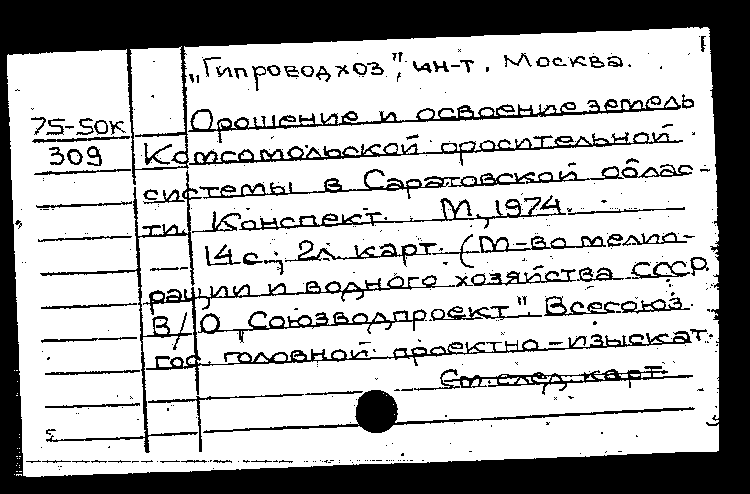 „Гипроводхоз", ин-т, Москва.
75-50к
309
Орошение и освоение земель
Комсомольской оросительной
системы в Саратовской облас-
ти. Конспект. М., 1974.
14 с.; 2л. карт. (М-во мелио-
рации и водного хозяйства СССР.
В/О „Союзводпроект". Всесоюз.
гос. головной проектно-изыскат.
См. след. карт.